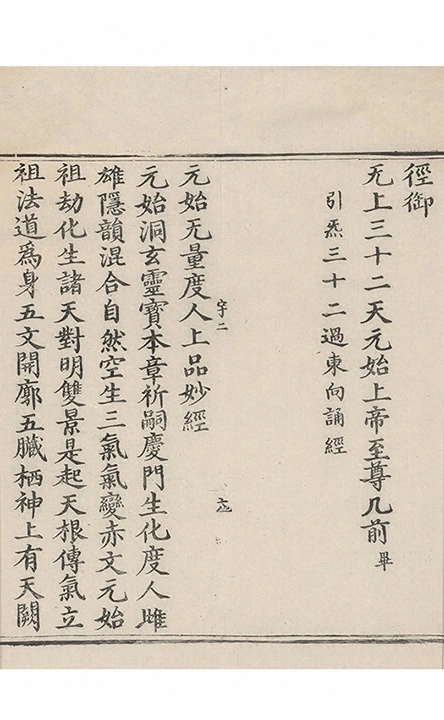 徑御
无上三十二天元始上帝至尊几前畢
引炁三十二過東向誦經
字二
元始无量度人上品妙經
元始洞玄靈寶本章祈嗣慶門生化度人雌
雄隱韻混合自然空生三氣氣變赤文元始
祖劫化生諸天對明雙景是起天根傳氣立
祖法道爲身五文開廓五臟栖神上有天闕